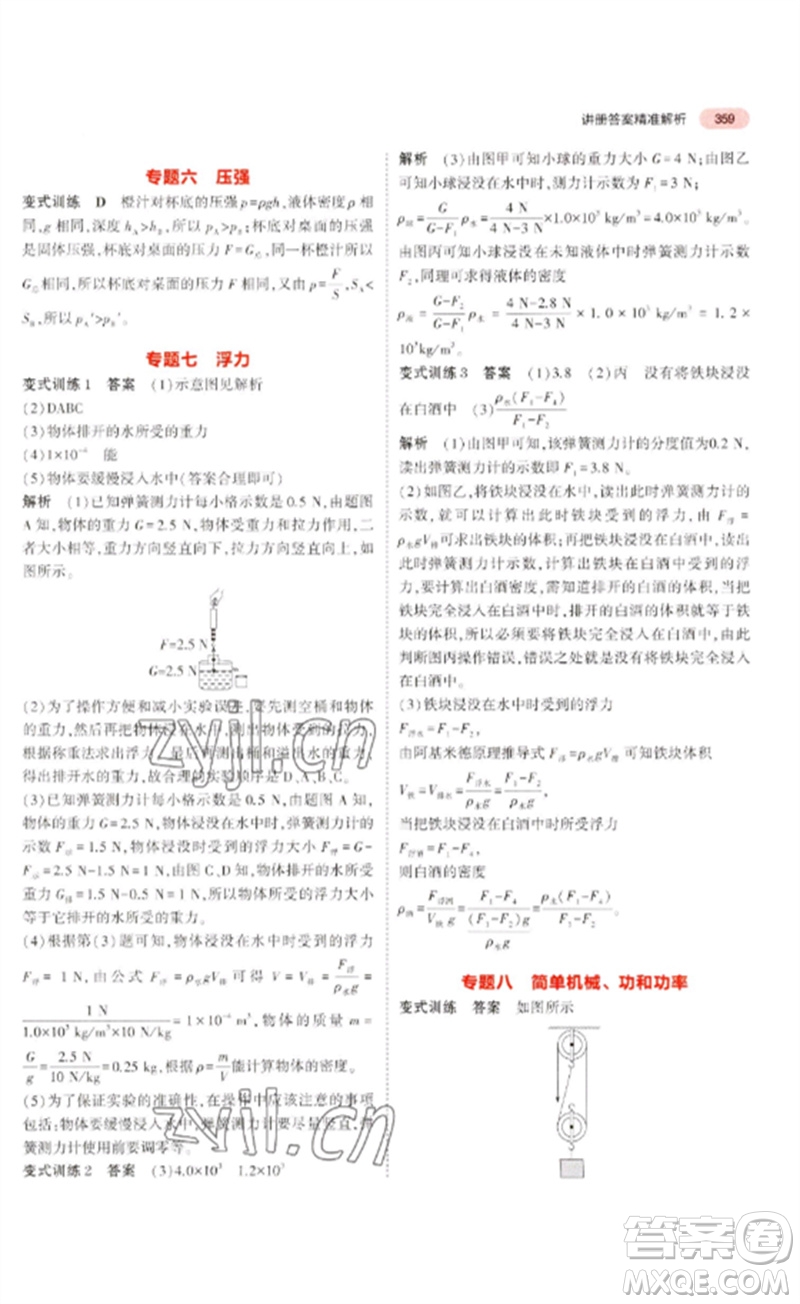 讲册答案精准解析 359
专题六 压强
变式训练 D 橙汁对杯底的压强p=ρgh,液体密度ρ相
同,g相同,深度h_A>h_B,所以p_A>p_B;杯底对桌面的压强
是固体压强,杯底对桌面的压力F=G总,同一杯橙汁所以
G总相同,所以杯底对桌面的压力F相同,又由p=F/S,S_A<
S_B,所以p_A'>p_B'。
专题七 浮力
变式训练1 答案 (1)示意图见解析
(2)DABC
(3)物体排开的水所受的重力
(4)1×10⁻⁴ 能
(5)物体要缓慢浸入水中(答案合理即可)
解析 (1)已知弹簧测力计每小格示数是0.5 N,由题图
A知,物体的重力G=2.5 N,物体受重力和拉力作用,二
者大小相等,重力方向竖直向下,拉力方向竖直向上,如
图所示。
F=2.5 N
G=2.5 N
(2)为了操作方便和减小实验误差,要先测空桶和物体
的重力,然后再把物体浸没在水中,测出物体受到的拉力,
根据称重法求出浮力,最后再测出桶和溢出水的重力,
得出排开水的重力,故合理的实验顺序是D、A、B、C。
(3)已知弹簧测力计每小格示数是0.5 N,由题图A知,
物体的重力G=2.5 N,物体浸没在水中时,弹簧测力计的
示数F示=1.5 N,浸没时受到的浮力大小F浮=G-
F示=2.5 N-1.5 N=1 N;由C、D知,物体排开的水所受
重力G排=1.5 N-0.5 N=1 N,所以物体所受的浮力大小
等于它排开的水所受的重力。
(4)根据第(3)题可知,物体浸没在水中时受到的浮力
F浮=1 N,由公式F浮=ρ水gV物可得V=F浮/ρ水g=
1 N/(1.0×10³ kg/m³×10 N/kg)=1×10⁻⁴ m³,物体的质量m=
G/g=2.5 N/10 N/kg=0.25 kg,根据ρ=m/V能计算物体的密度。
(5)为了保证实验的准确性,在操作中应该注意的事项
包括:物体要缓慢浸入水中、弹簧测力计要尽量竖直、弹
簧测力计使用前要调零等。
变式训练2 答案 (3)4.0×10³ 1.2×10³
解析 (3)由图甲可知小球的重力大小G=4 N;由图乙
可知小球浸没在水中时,测力计示数F₁=3 N;
ρ球=G/(G-F₁)ρ水=4 N/(4 N-3 N)×1.0×10³ kg/m³=4.0×10³ kg/m³。
由图丙可知小球浸没在未知液体中时弹簧测力计示数
F₂,同理可求得液体的密度
ρ液=(G-F₂)/(G-F₁)ρ水=(4 N-2.8 N)/(4 N-3 N)×1.0×10³ kg/m³=1.2×
10³kg/m³。
变式训练3 答案 (1)3.8 (2)丙 没有将铁块浸没
在白酒中 (3)ρ水(F₁-F₄)/(F₁-F₂)
解析 (1)由图甲可知,该弹簧测力计的分度值为0.2 N,
读出弹簧测力计的示数即F₁=3.8 N。
(2)如图乙,将铁块浸没在水中,读出此时弹簧测力计的
示数,就可以计算出此时铁块所受的浮力,由F浮=
ρ水gV排可求出铁块的体积;再把铁块浸没在白酒中,读出
此时弹簧测力计示数,计算出铁块浸没在白酒中受的浮
力,要计算出白酒密度,需知道排开的白酒的体积,当把
铁块完全浸入在白酒中时,排开的白酒的体积就等于铁
块的体积,所以必须要将铁块完全浸入在白酒中,由此
判断图丙操作错误,错误之处是没有将铁块完全浸入
在白酒中。
(3)铁块浸没在水中时受到的浮力
F浮水=F₁-F₂
由阿基米德原理推导式F浮=ρ水gV排可知铁块体积
V铁=V排水=F浮水/ρ水g=(F₁-F₂)/ρ水g
当把铁块浸没在白酒中时所受浮力
F浮酒=F₁-F₄
则白酒的密度
ρ酒=F浮酒/V铁g=(F₁-F₄)/((F₁-F₂)g/ρ水g)=ρ水(F₁-F₄)/(F₁-F₂)。
专题八 简单机械、功和功率
变式训练 答案 如图所示
zyjl.cn
zyjl.cn
答案圈
MXQE.COM